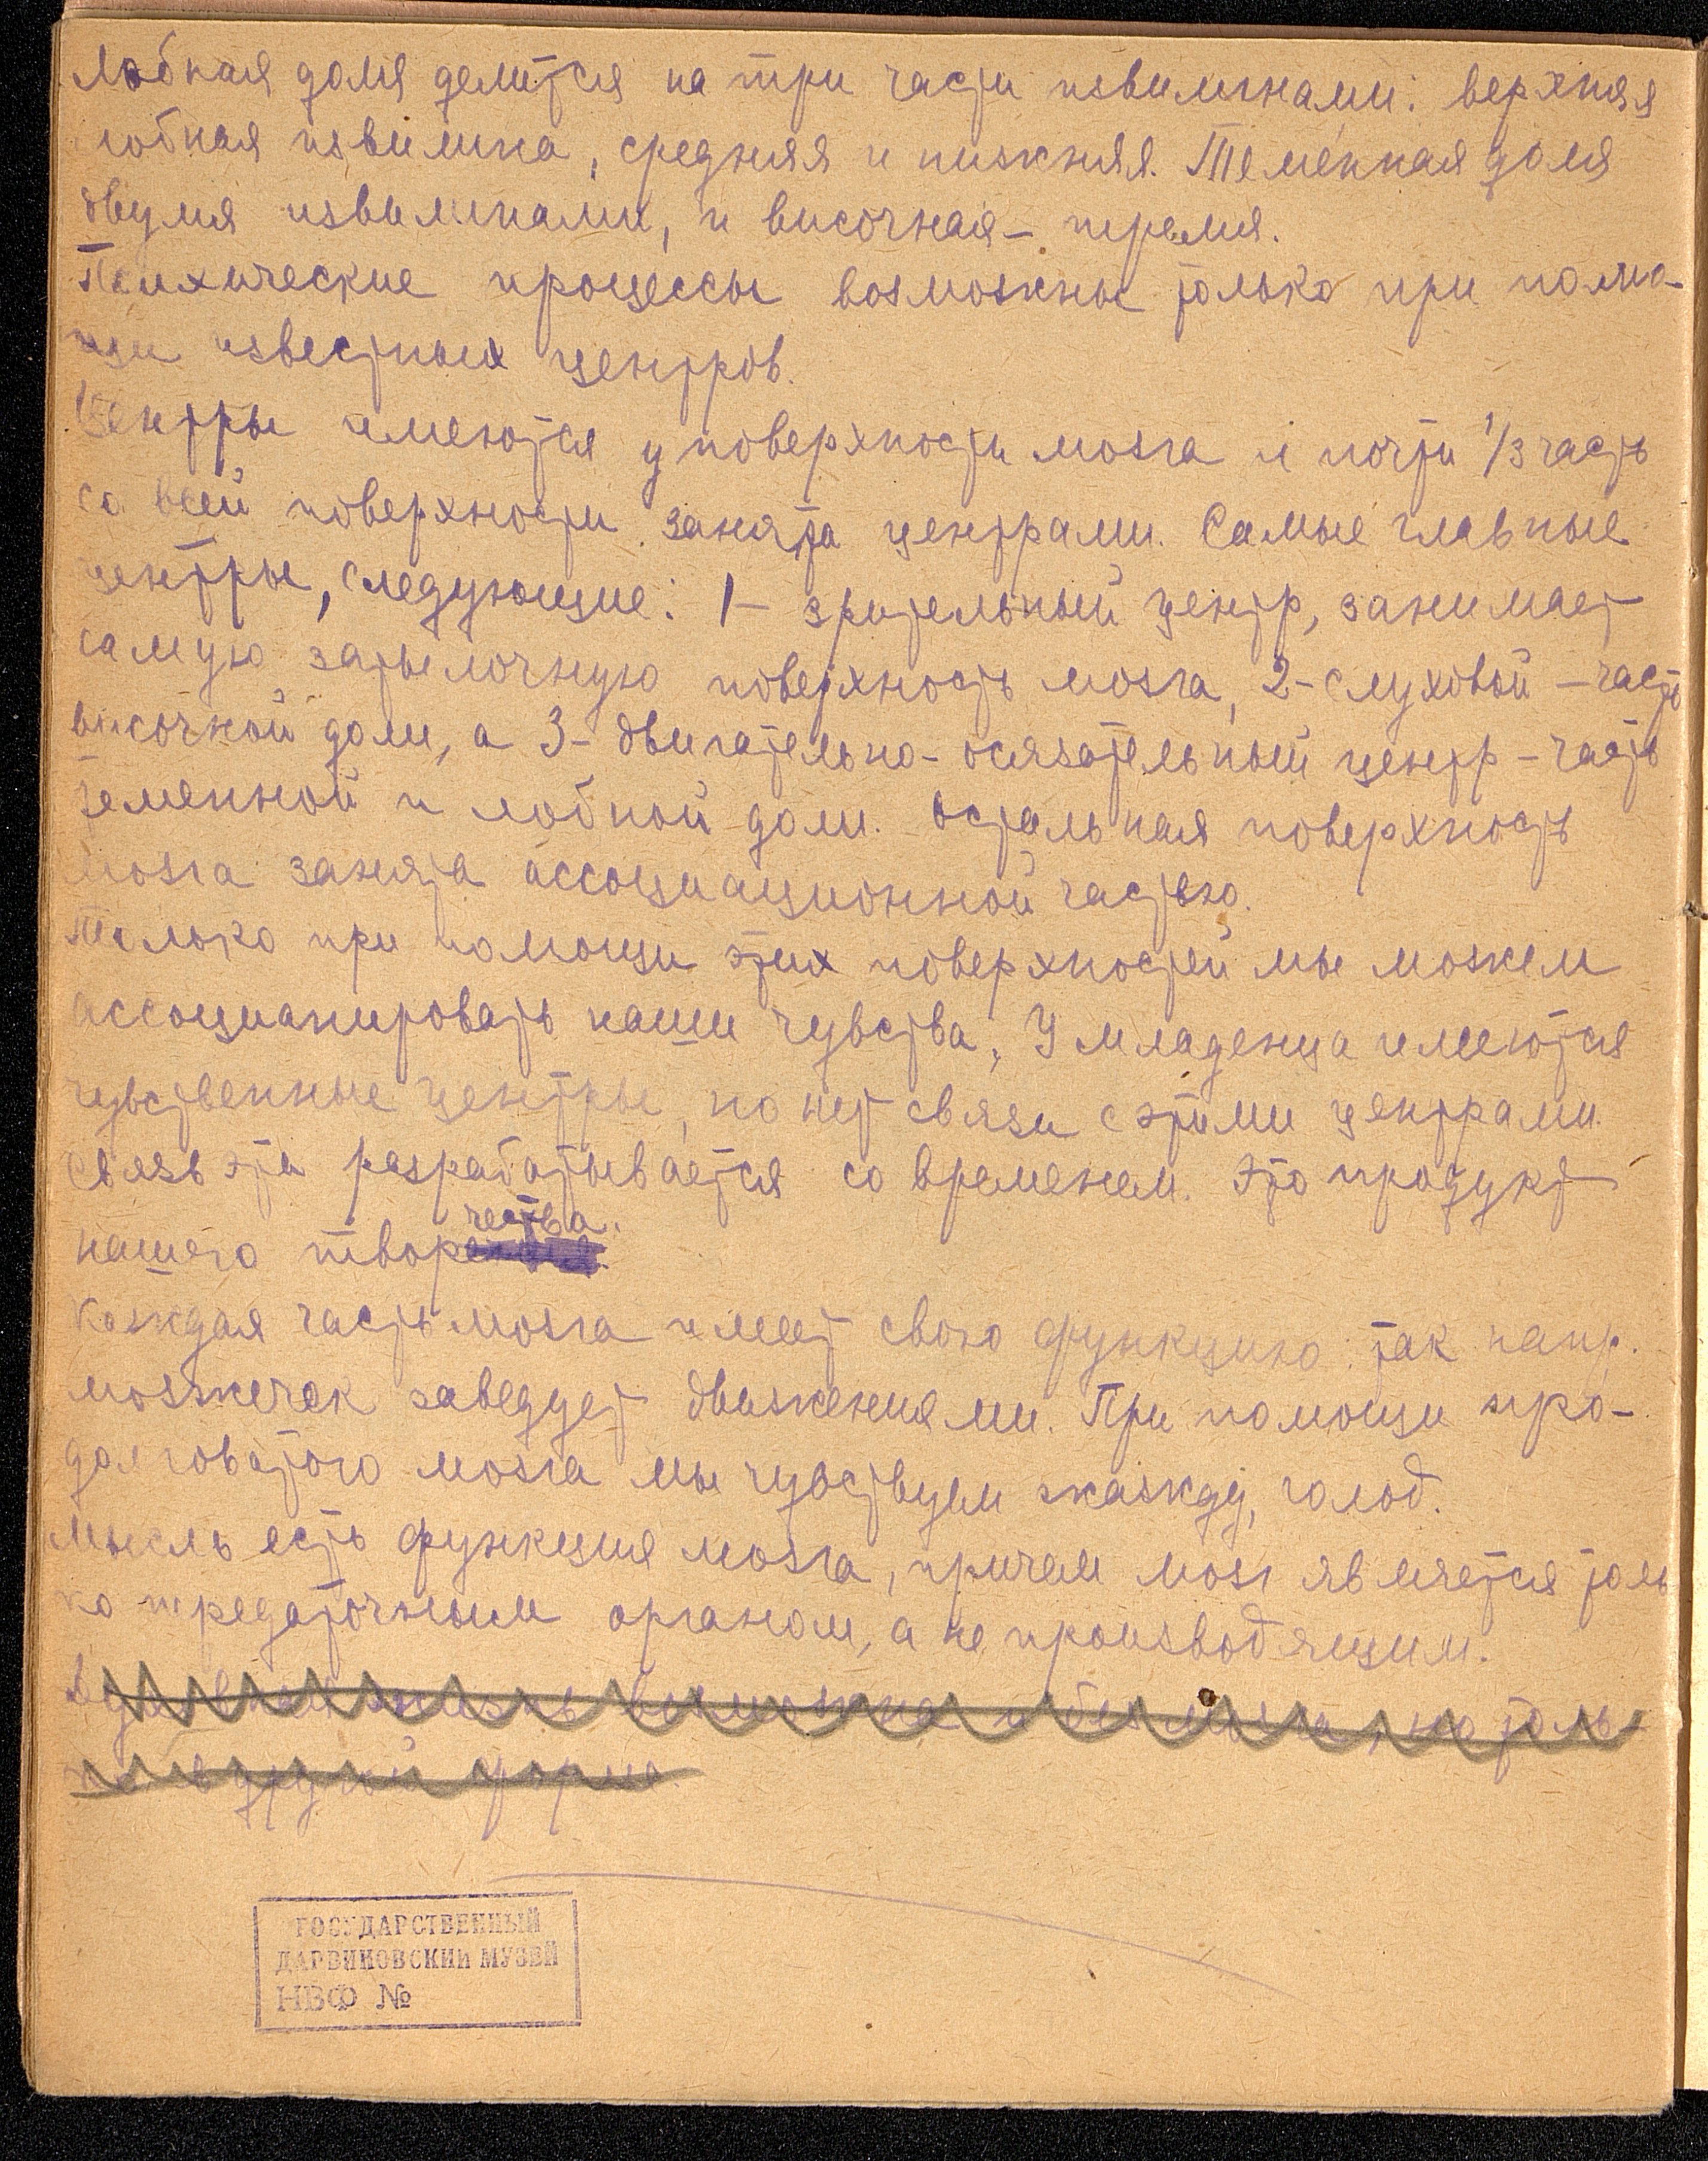 Лобная доля делится на три части извилинами: верхняя
лобная извилина, средняя и нижняя. Теменная доля
двумя извилинами, и височная – тремя.
Психические процессы возможны только при помо-
щи известных центров.
Центры имеются у поверхности мозга и почти 1/3 часть
со всей поверхности занята центрами. Самые главные
центры, следующие: 1 – зрительный центр, занимает
самую затылочную поверхность мозга, 2 – слуховой – часть
височной доли, а 3 – двигательно-осязательный центр – часть
теменной и лобной доли. Остальная поверхность
мозга занята ассоциационной частью.
Только при помощи этих поверхностей мы можем
ассоцианировать наши чувства, У младенца имеются
чувственные центры, но нет связи с этими центрами.
Связь эта разрабатывается со временем. Это продукт
нашего творчества.
Каждая часть мозга имеет свою функцию: так напр.
мозжечек заведует движениями. При помощи про-
долговатого мозга мы чувствуем жажду, голод.
Мысль есть функция мозга, причем мозг является толь
ко передаточным органом, а не производящим.
жизнь возможна и без мозга, но толь-
ко в другой форме.
ГОСУДАРСТВЕННЫЙ
ДАРВИНОВСКИЙ МУЗЕЙ
НВФ №